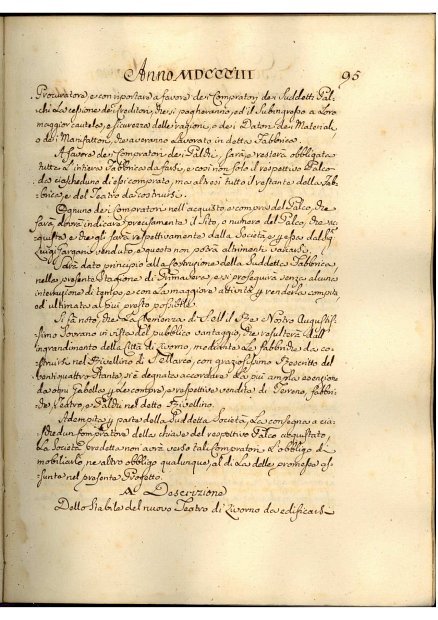 Anno MDCCCIII 95
Procuratore, e con riportare a favore dei Compratori dei Suddetti Pal-
chi la cessione dei Creditori, che si pagheranno, ed il Subingresso a loro
maggior cautela, e sicurezza delle ragioni, o dei Datori dei Materiali,
o dei Manifattori, che averanno lavorato in detta Fabbrica.
A favore dei Compratori dei Palchi, sarà, e resterà obbligata
tutta l'intiera Fabbrica da farsi, e così non solo il respettivo Palco
da ciascheduno di essi comprato, ma altresì tutto il restante della Fab-
brica, e del Teatro da costruirsi.
Ognuno dei Compratori nell'acquisto, e compra del Palco, che
farà, dovrà indicare precisamente il Sito, o numero del Palco, che ac-
quista, e che gli sarà respettivamente dalla Società, e per essa dal Sig.
Luigi Gargani venduto, e questo non potrà altrimenti variarsi.
Sarà dato principio alla Costruzione della Suddetta Fabbrica
nella presente Stagione di Primavera, e si proseguirà senza alcuna
interruzione di tempo, e con la maggiore attività per renderla compita,
ed ultimata al più presto possibile.
Si fà noto, che la Clemenza di S. e il Re Nostro Augustis-
simo Sovrano in vista del pubblico vantaggio, che resulterà dall'
ingrandimento della Città di Livorno, mediante le Fabbriche da co-
struirsi nel Rivellino di S. Marco, con graziosissimo Rescritto del
ventiquattro Stante, si è degnata accordare la più ampla esenzione
da ogni Gabella per le compre, e respettive vendite di Terreno, fabbri-
che, Teatro, e Palchi nel detto Rivellino.
Adempita per parte della Suddetta Società, la consegna a cia-
schedun Compratore della chiave del respettivo Palco acquistato,
la Società predetta non avrà verso tali Compratori l'obbligo di
mobiliarlo, ne altro obbligo qualunque, al di là delle promesse as-
sunte nel presente Progetto.
Descrizione
Dello Stabile del nuovo Teatro di Livorno da edificarsi